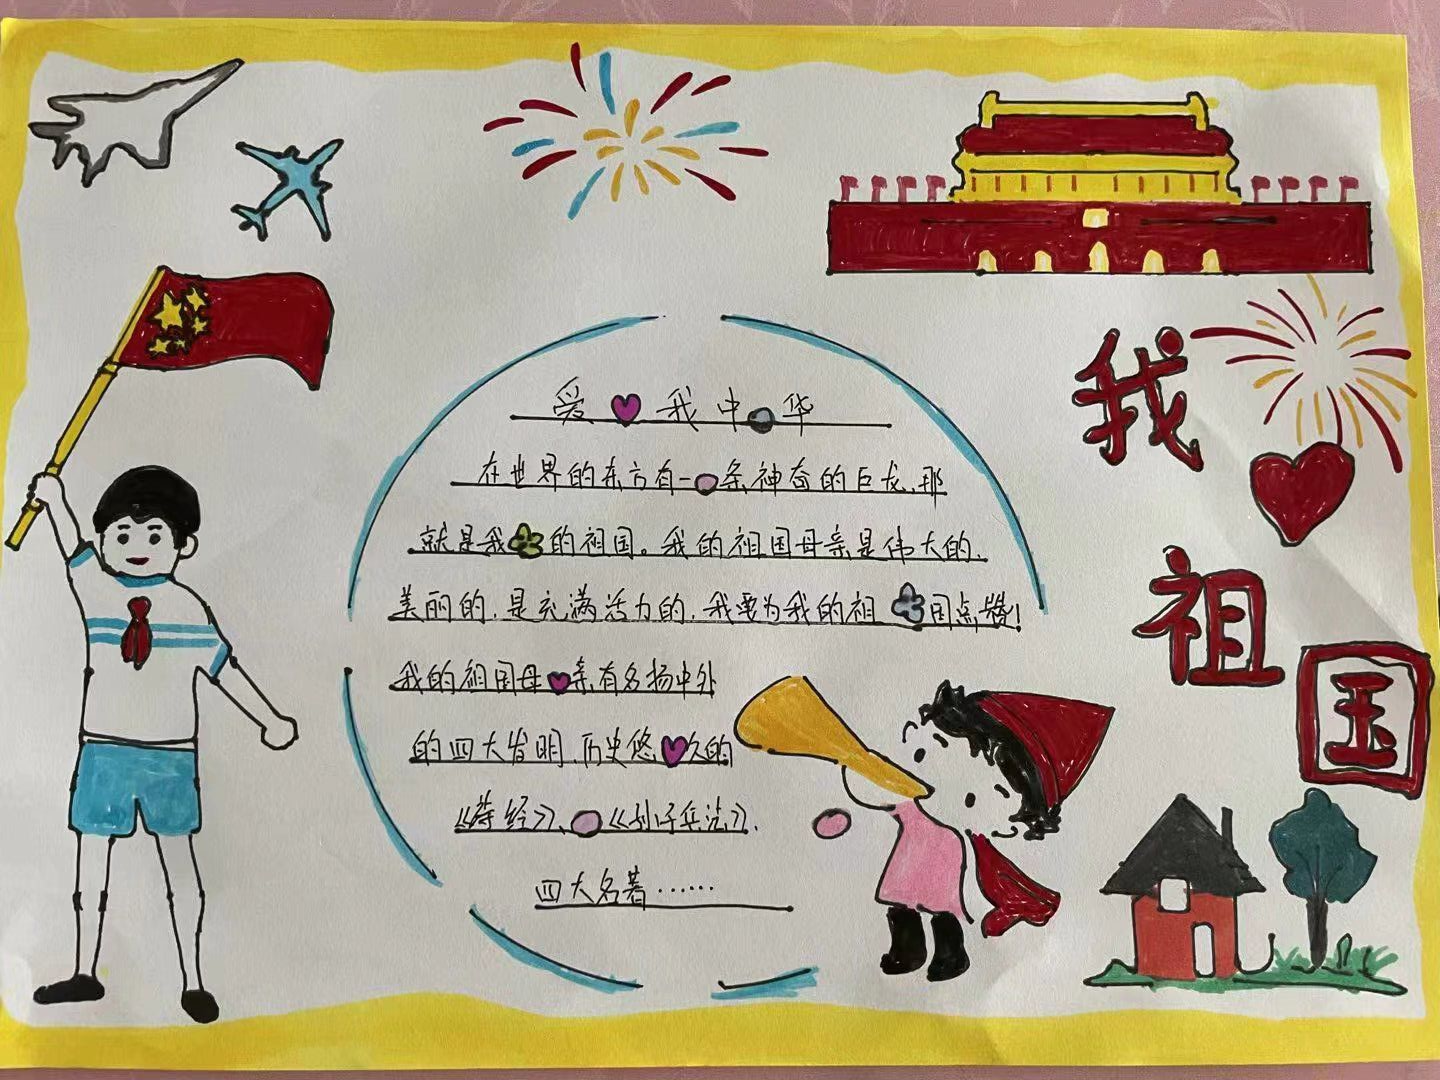 爱我中华
在世界的东方有一条神奇的巨龙、那
就是我的祖国。我的祖国母亲是伟大的、
美丽的、是充满活力的、我要为我的祖国点赞!
我的祖国母亲有名扬中外
的四大发明、历史悠久的
《诗经》、《孙子兵法》、
四大名著……
我
祖
国